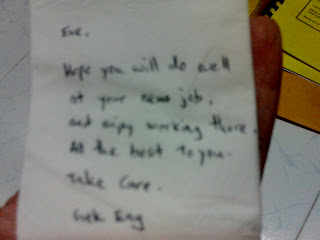 Eve,
Hope you will do well
at your new job,
and enjoy working there.
All the best to you.
Take Care.
Gek Eng